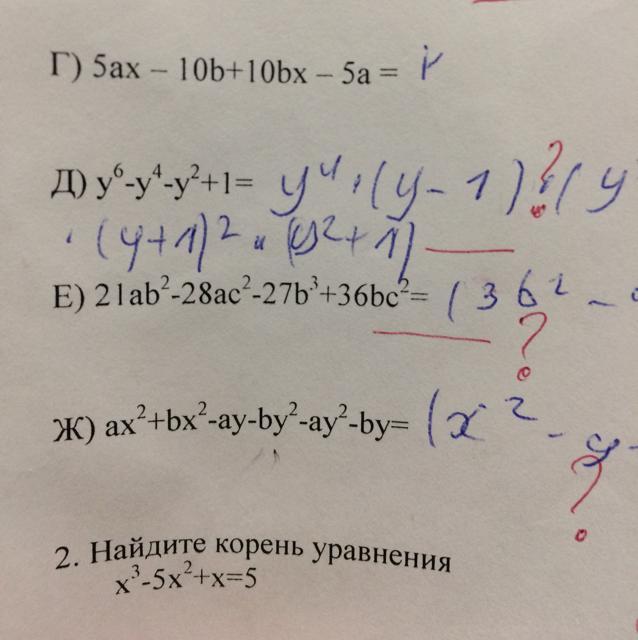 Г) 5ax – 10b+10bx – 5a =
Д) y⁶-y⁴-y²+1= y⁴ · (y – 1) · (y
· (y+1)² · (y²+1)
Е) 21ab²-28ac²-27b³+36bc²= (3b² –
Ж) ax²+bx²-ay-by²-ay²-by= (x² - y
2. Найдите корень уравнения
x³-5x²+x=5